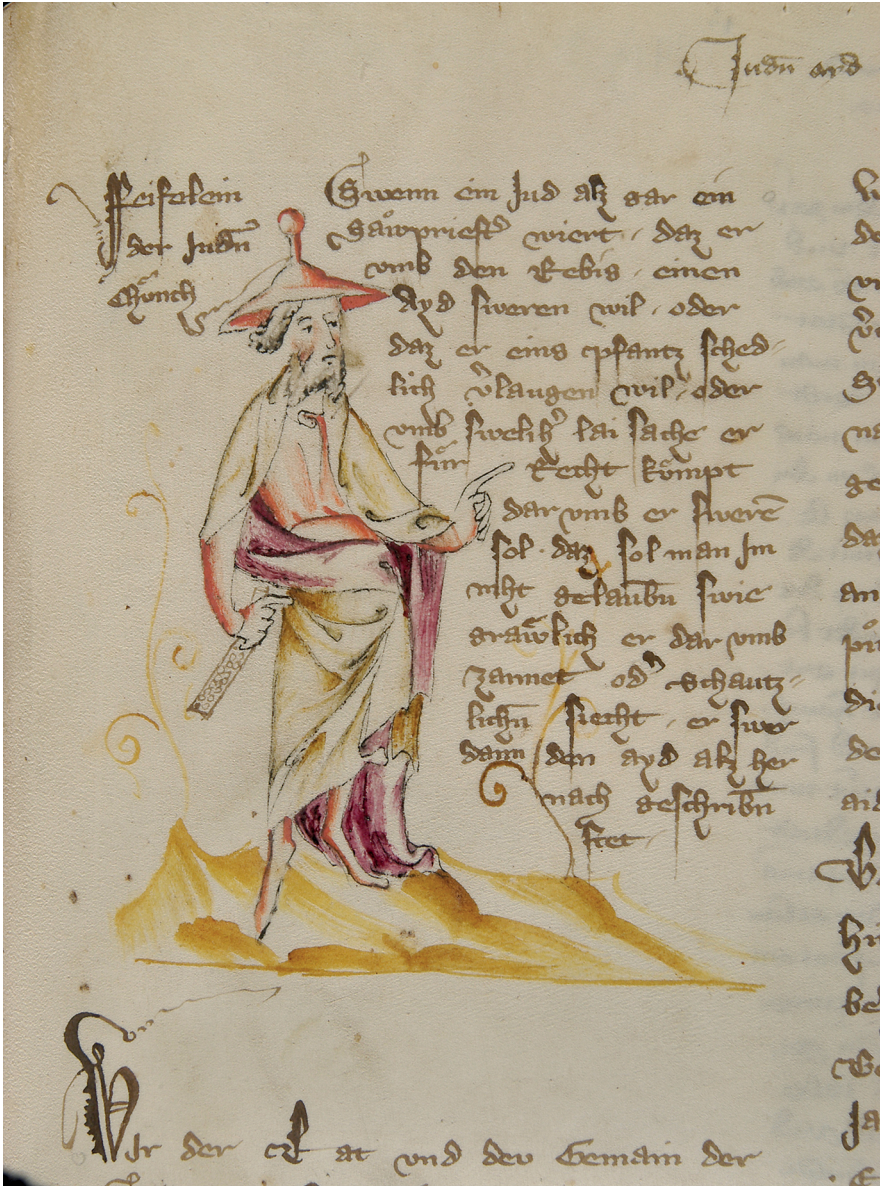 Judn̄ ayd
Feifelein
der Judn̄
Mönch
Swenn ein Jud alz gar ein
Sawpriest wiert · daz er
vmb den Rebis · einen
Ayd sweren wil · oder
daz er eins pfantz sched-
lich v̉laugen wil · oder
vmb swelih̉ lai sache er
für Recht kompt
dar vmb er swerē
sol · daz sol man Im
niht gelaubn̄ swie
grawlich er dar vmb
zannet od̉ schautz-
lichn̄ siecht · er swer
dann den ayd alz her
nach geschribn̄
stet ·
Wir der Rat vnd dev Gemain der